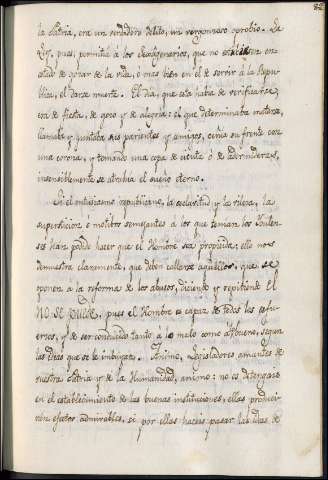 82
la Patria, era un verdadero delito, un vergonzoso oprobio. La
Ley, pues, permitia á los Sexâgenarios, que no estaban en
estado de gozar de la vida, ó mas bien en el de servir á la Repu-
blica, el darse muerte. El dia, que esta habia de verificarse,
era de fiesta, de gozo y de alegria: el que determinaba matarse,
llamaba y juntaba sus parientes y amigos, ceñia su frente con
una corona, y tomando una copa de cicuta ó de adormideras,
insensiblemente se atrahia el sueño eterno.
Si el entusiasmo republicano, la esclavitud y la rileza, la
supersticion ó motibos semejantes á los que tenian los
han podido hacer que el Hombre sea propicida; ello nos
demuestra claramente, que deben callarse aquellos, que se
oponen á la reforma de los abusos, diciendo y repitiendo El
NO SE PUEDE, pues el Hombre es capaz de todos los esfu-
erzos, y de ser conducido tanto á lo malo como á lo bueno, segun
las ideas que se le imbuyan. Animo, Legisladores amantes de
nuestra Patria y de la Humanidad, animo: no os detengais
en el establecimiento de las buenas instituciones, ellas produci-
rán efectos admirables, si por ellas haceis pasar las ideas de